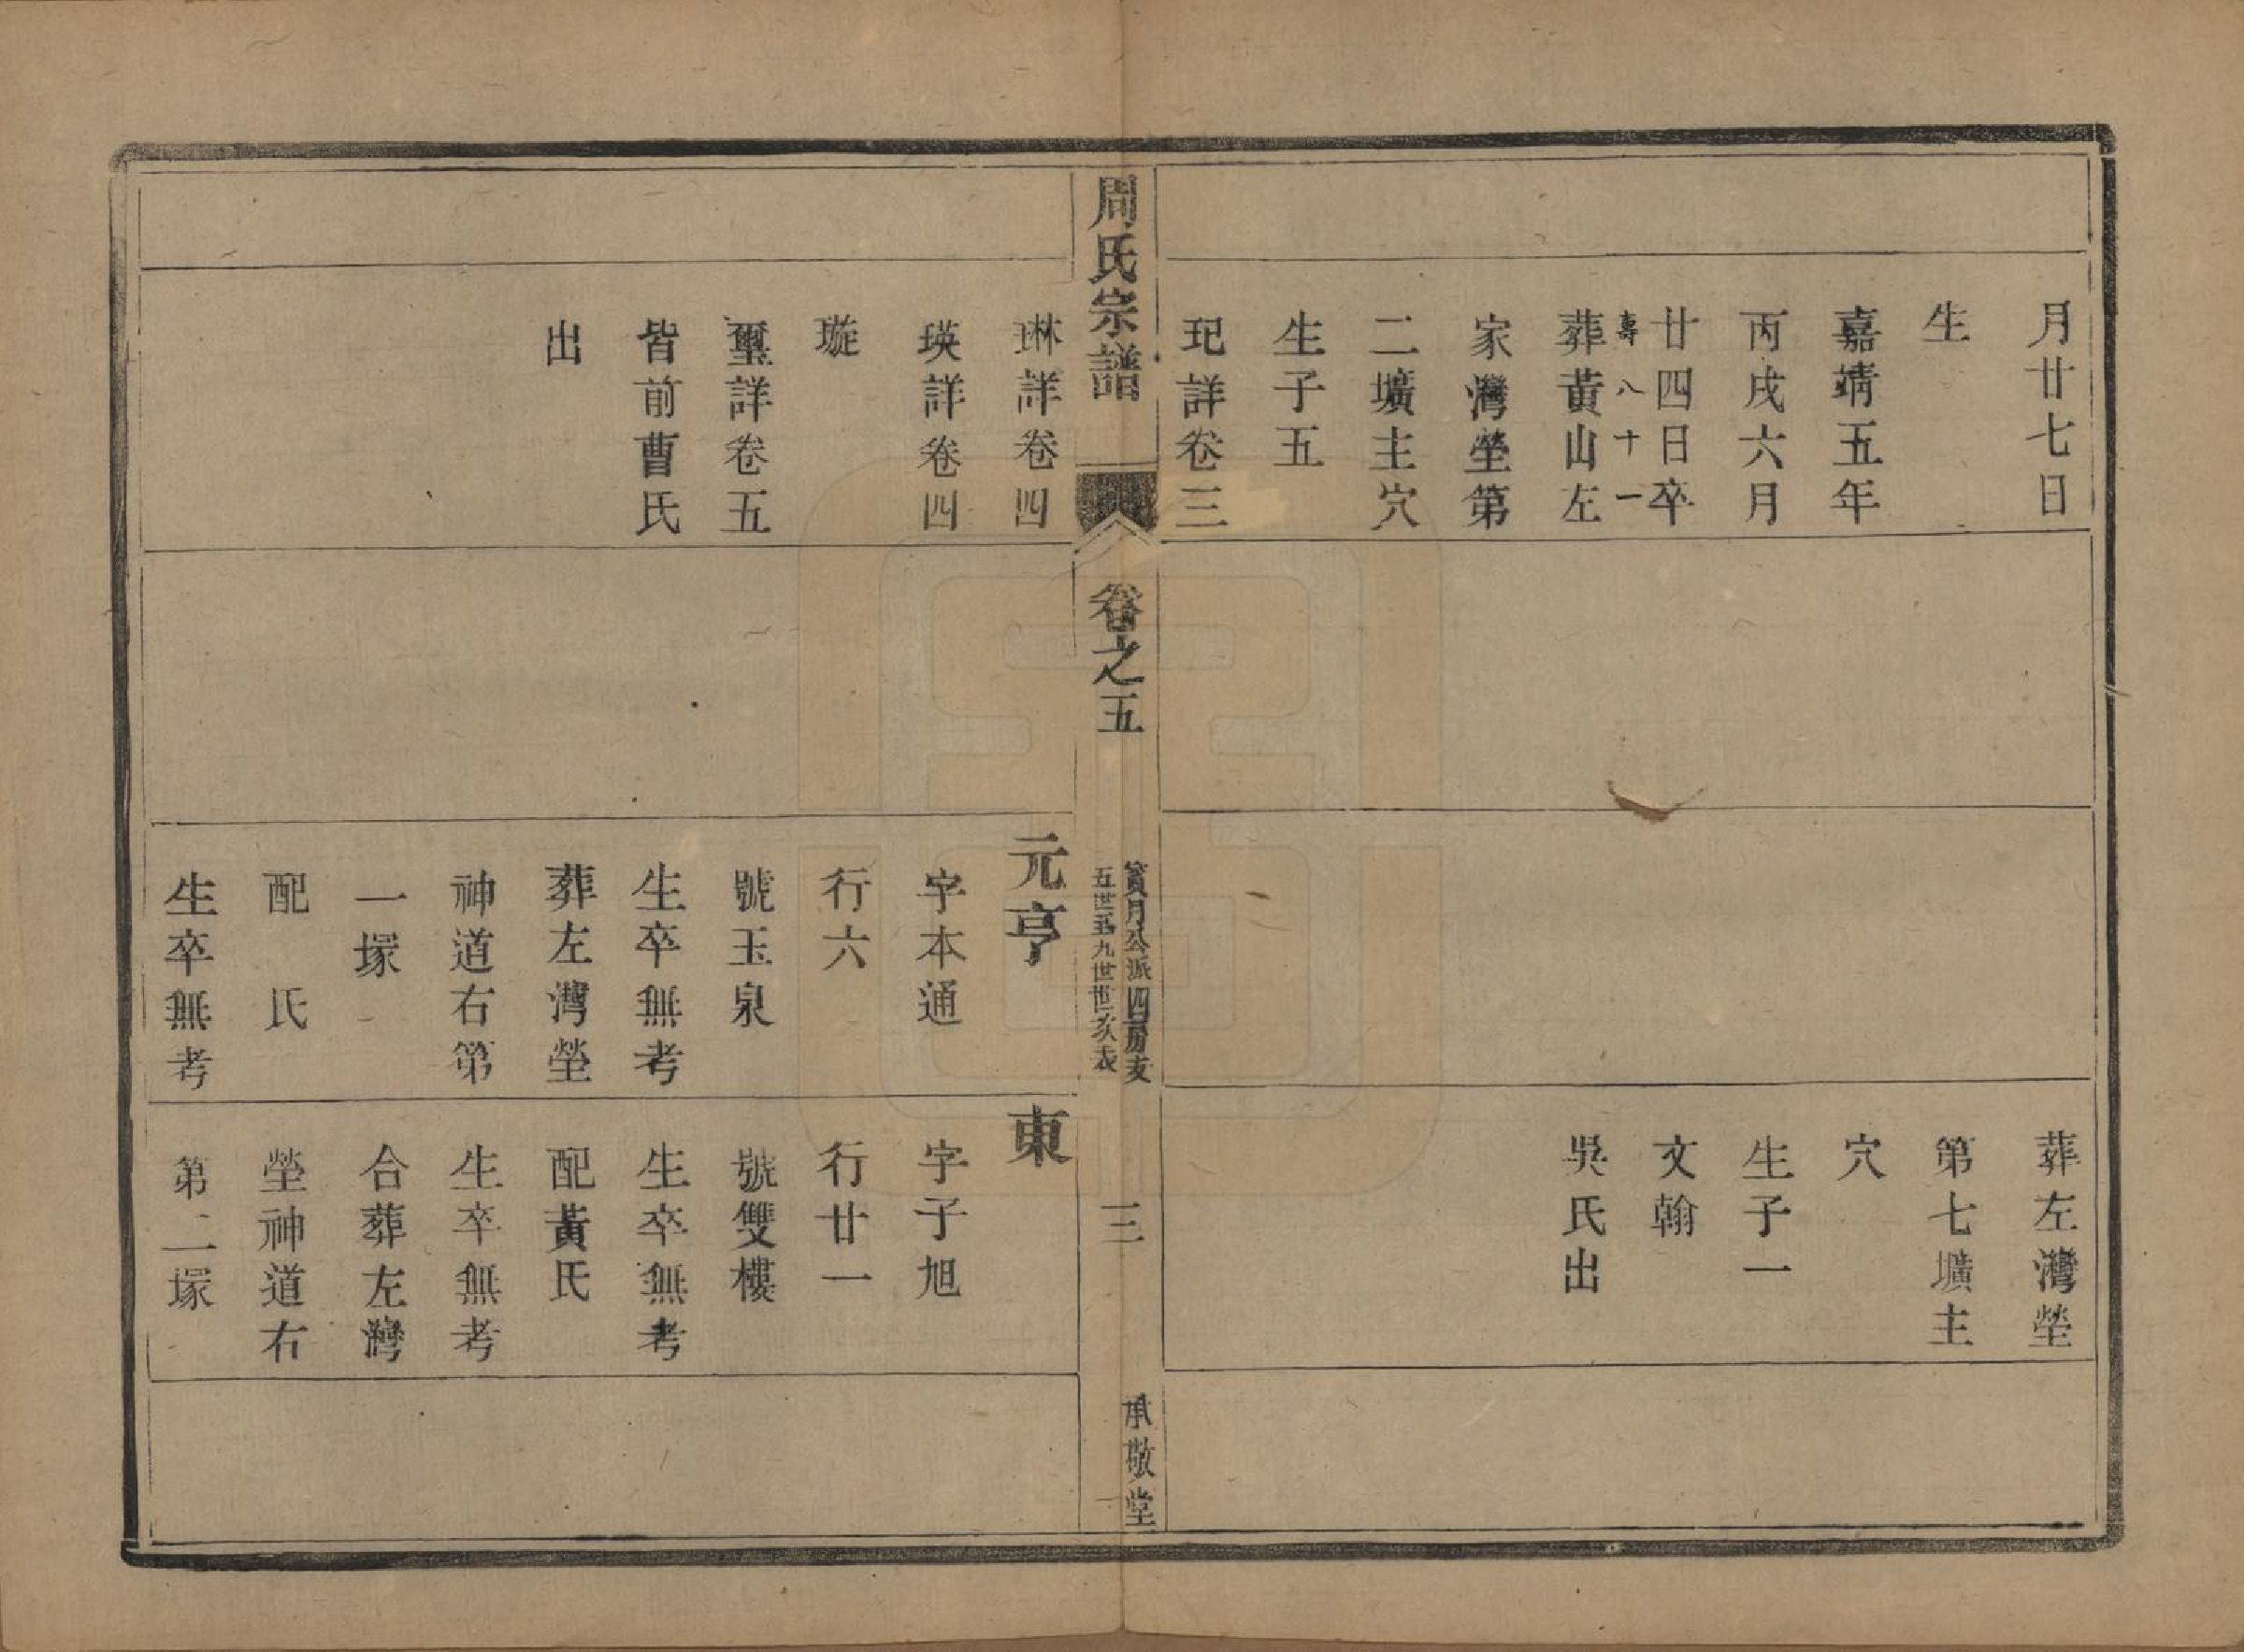 月廿七日
生
嘉靖五年
丙戌六月
廿四日卒
壽八十一
葬黃山左
家灣塋第
二壙主穴
生子五
玘詳卷三
葬左灣塋
第七壙主
穴
生子一
文翰
吳氏出
周氏宗譜
卷之五
筼月公派四房支
五世至九世世系表
三
承敬堂
琳詳卷四
瑛詳卷四
璇
璽詳卷五
皆前曹氏
出
元亨
字本通
行六
號玉泉
生卒無考
葬左灣塋
神道右第
一塚
配　氏
生卒無考
東
字子旭
行廿一
號雙樓
生卒無考
配黃氏
生卒無考
合葬左灣
塋神道右
第二塚